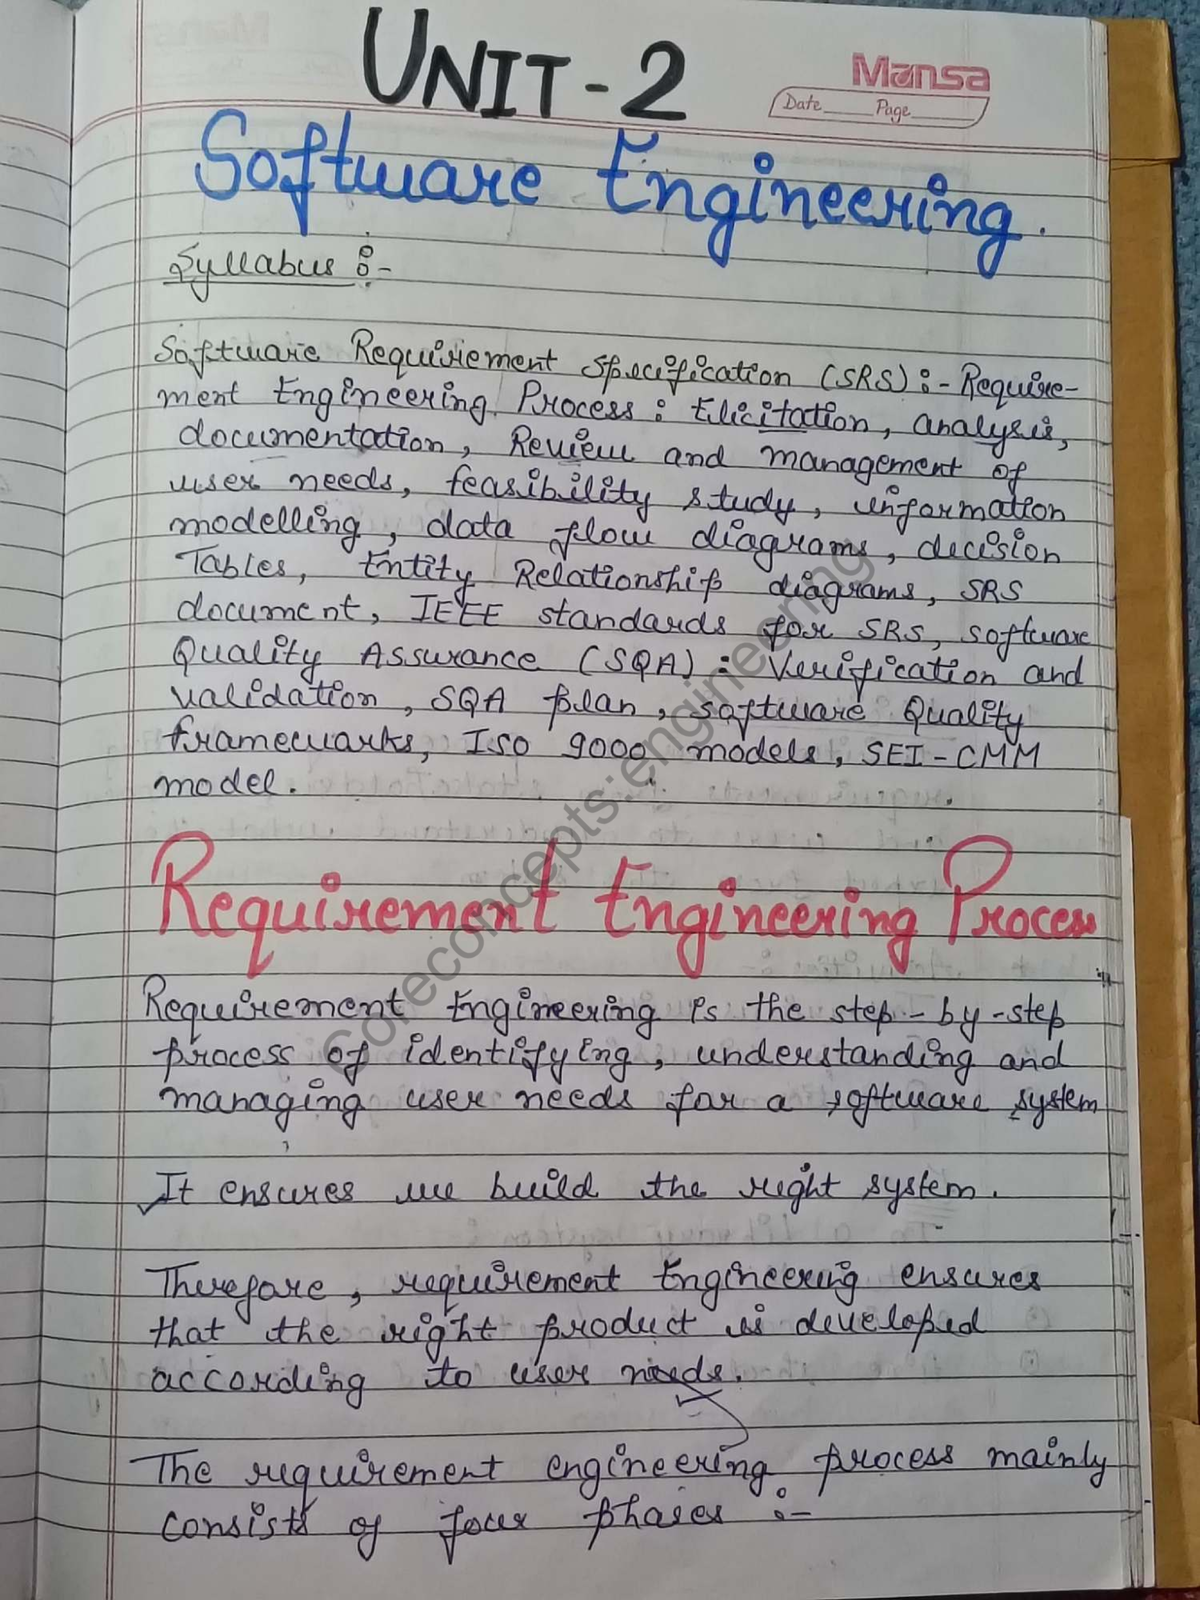 UNIT - 2
Mansa
Date Page
Software Engineering.
Syllabus :-
Software Requirement Specification (SRS) :- Require-
ment Engineering Process : Elicitation, analysis,
documentation, Review and management of
user needs, feasibility study, information
modelling, data flow diagrams, decision
Tables, Entity Relationship diagrams, SRS
document, IEEE standards for SRS, software
Quality Assurance (SQA) : Verification and
validation, SQA plan, software Quality
frameworks, ISO 9000 models, SEI-CMM
model.
Requirement Engineering Process
Requirement Engineering is the step-by-step
process of identifying, understanding and
managing user needs for a software system
It ensures we build the right system.
Therefore, requirement Engineering ensures
that the right product is developed
according to user needs.
The requirement engineering process mainly
consists of four phases :-
Coreconcepts.engineering